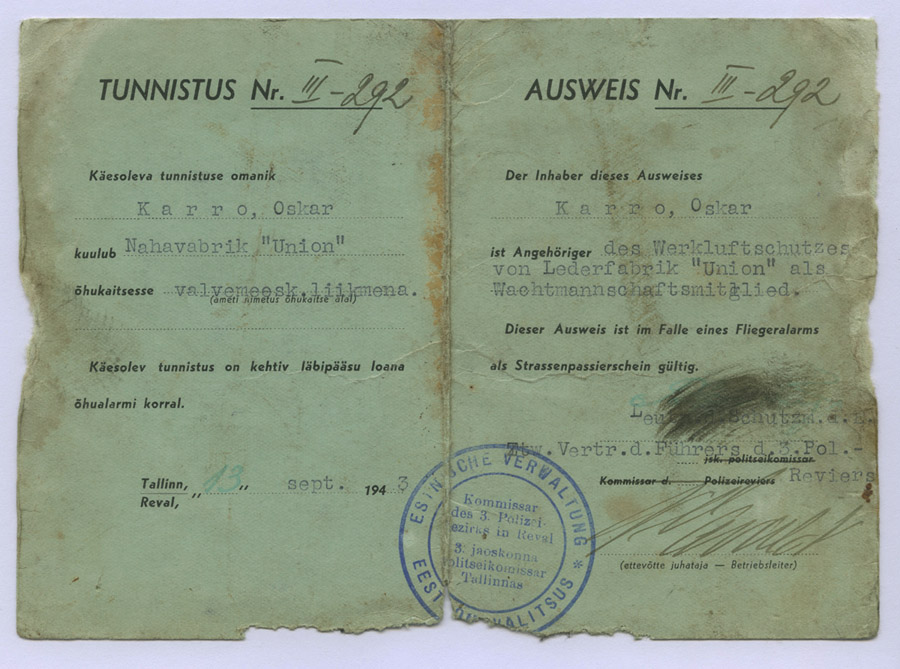 TUNNISTUS Nr. III-292
Käesoleva tunnistuse omanik
Karro, Oskar
kuulub Nahavabrik "Union"
õhukaitsesse valvemeesk.liikmena.
(ameti nimetus õhukaitse alal)
Käesolev tunnistus on kehtiv läbipääsu loana
õhualarmi korral.
Tallinn,
Reval, „ 13 „ sept. 1943
AUSWEIS Nr. III-292
Der Inhaber dieses Ausweises
Karro, Oskar
ist Angehöriger des Werkluftschutzes
von Lederfabrik "Union" als
Wachtmannschaftsmitglied.
Dieser Ausweis ist im Falle eines Fliegeralarms
als Strassenpassierschein gültig.
Schutzm.d.
Vertr.d.Führers d.3.Pol.-
jsk. politseikomissar
Kommissar d. Polizeireviers Reviers
(ettevõtte juhataja — Betriebsleiter)
ESTNISCHE VERWALTUNG *
Kommissar
des 3. Polizei-
ezirks in Reval
3. jaoskonna
olitseikomissar
Tallinnas
EEST